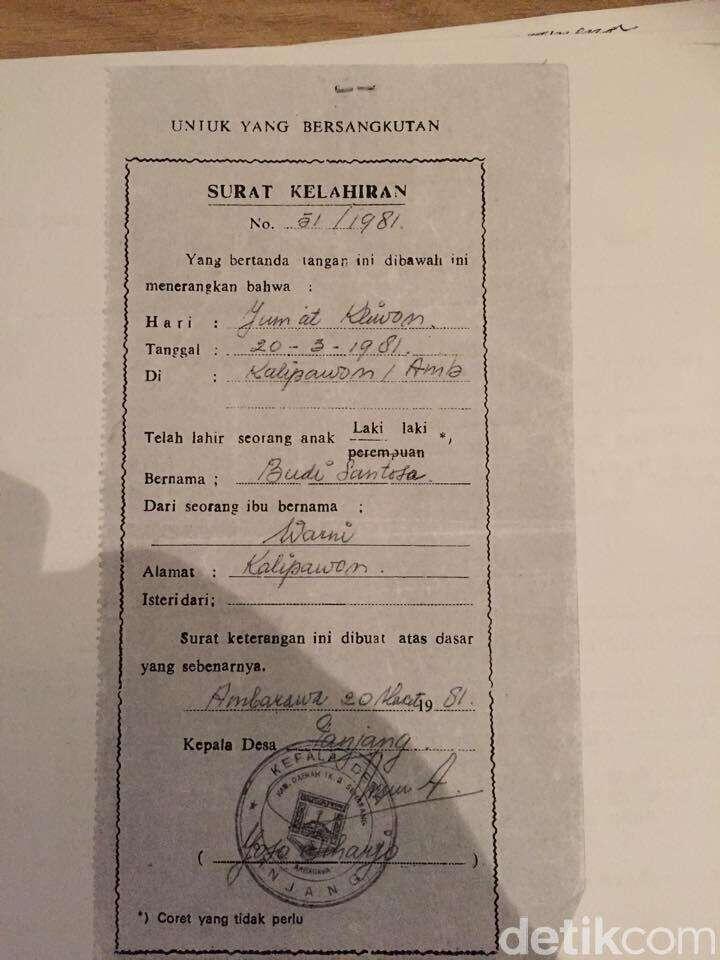 UNTUK YANG BERSANGKUTAN
SURAT KELAHIRAN
No. 51/1981.
Yang bertanda tangan ini dibawah ini
menerangkan bahwa :
Hari : Jum'at Kliwon.
Tanggal : 20-3-1981.
Di : Kalipawon / Amb
Telah lahir seorang anak Laki laki *,
perempuan
Bernama ; Budi Santosa.
Dari seorang ibu bernama ;
Warni
Alamat : Kalipawon.
Isteri dari;
Surat keterangan ini dibuat atas dasar
yang sebenarnya.
Ambarawa 20 Maret 1981.
Kepala Desa Panjang
KEPALA DESA
PANJANG
AMBARAWA
( )
*) Coret yang tidak perlu
detikcom